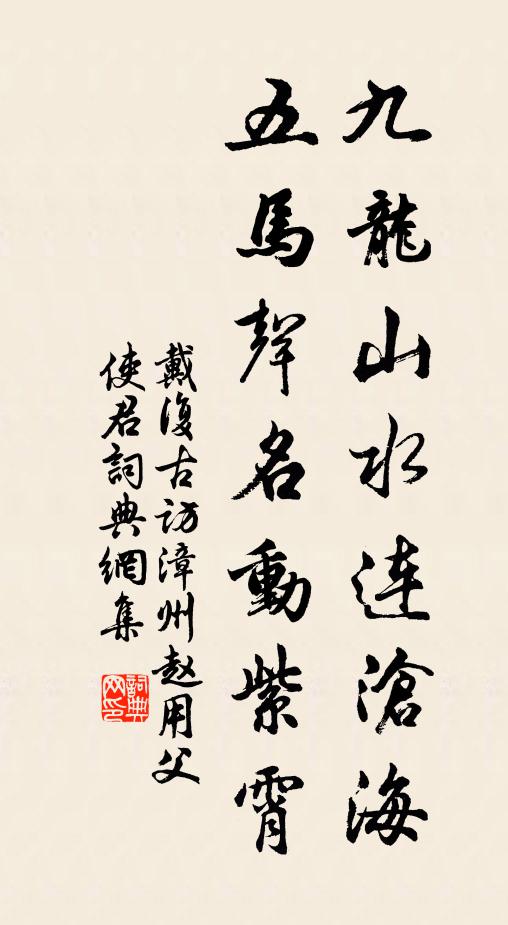 九龍山水連滄海
五馬聲名動紫霄
戴復古訪漳州趙用父
使君詞典網集
詞典
网印